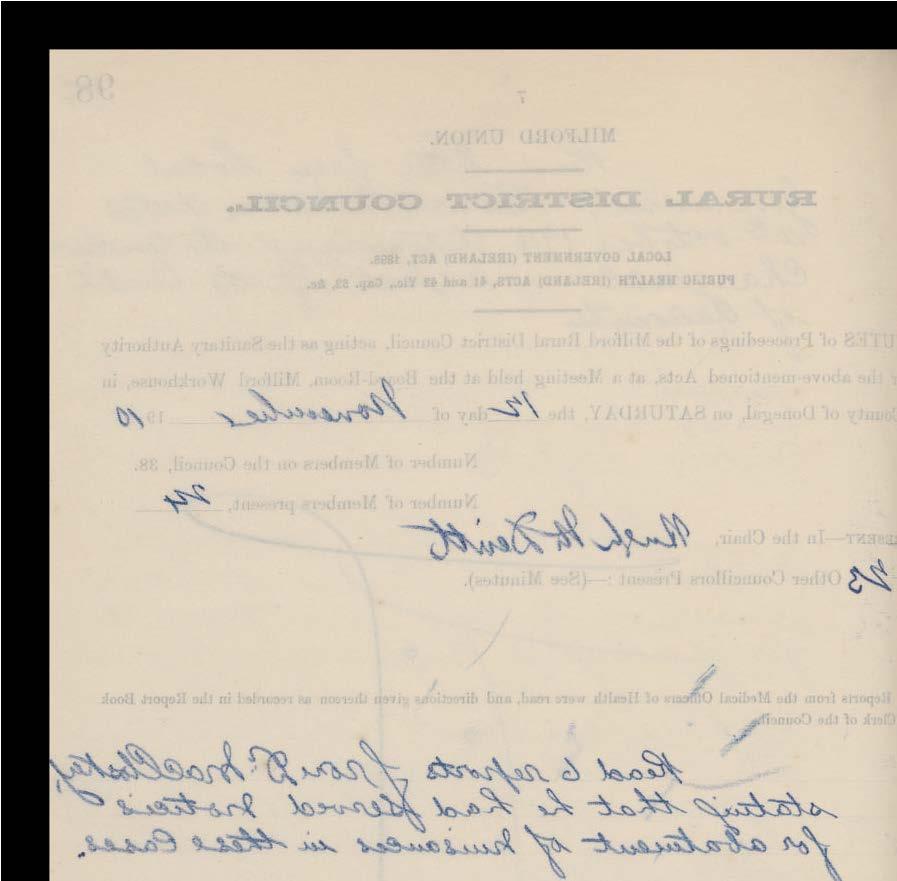 98
7
MILFORD UNION.
RURAL DISTRICT COUNCIL.
LOCAL GOVERNMENT (IRELAND) ACT, 1898.
PUBLIC HEALTH (IRELAND) ACTS, 41 and 42 Vic., Cap. 52, &c.
UTES of Proceedings of the Milford Rural District Council, acting as the Sanitary Authority
the above-mentioned Acts, at a Meeting held at the Board-Room, Milford Workhouse, in
County of Donegal, on SATURDAY, the 12 day of November 1910
Number of Members on the Council, 38.
Number of Members present, 24
ESENT—In the Chair, Hugh McDevitt
23 Other Councillors Present :—(See Minutes).
Reports from the Medical Officers of Health were read, and directions given thereon as recorded in the Report Book
Clerk of the Council.
Read 6 reports from Dr. MacCloskey,
stating that he had served notices
for abatment of nuisances in these Cases.